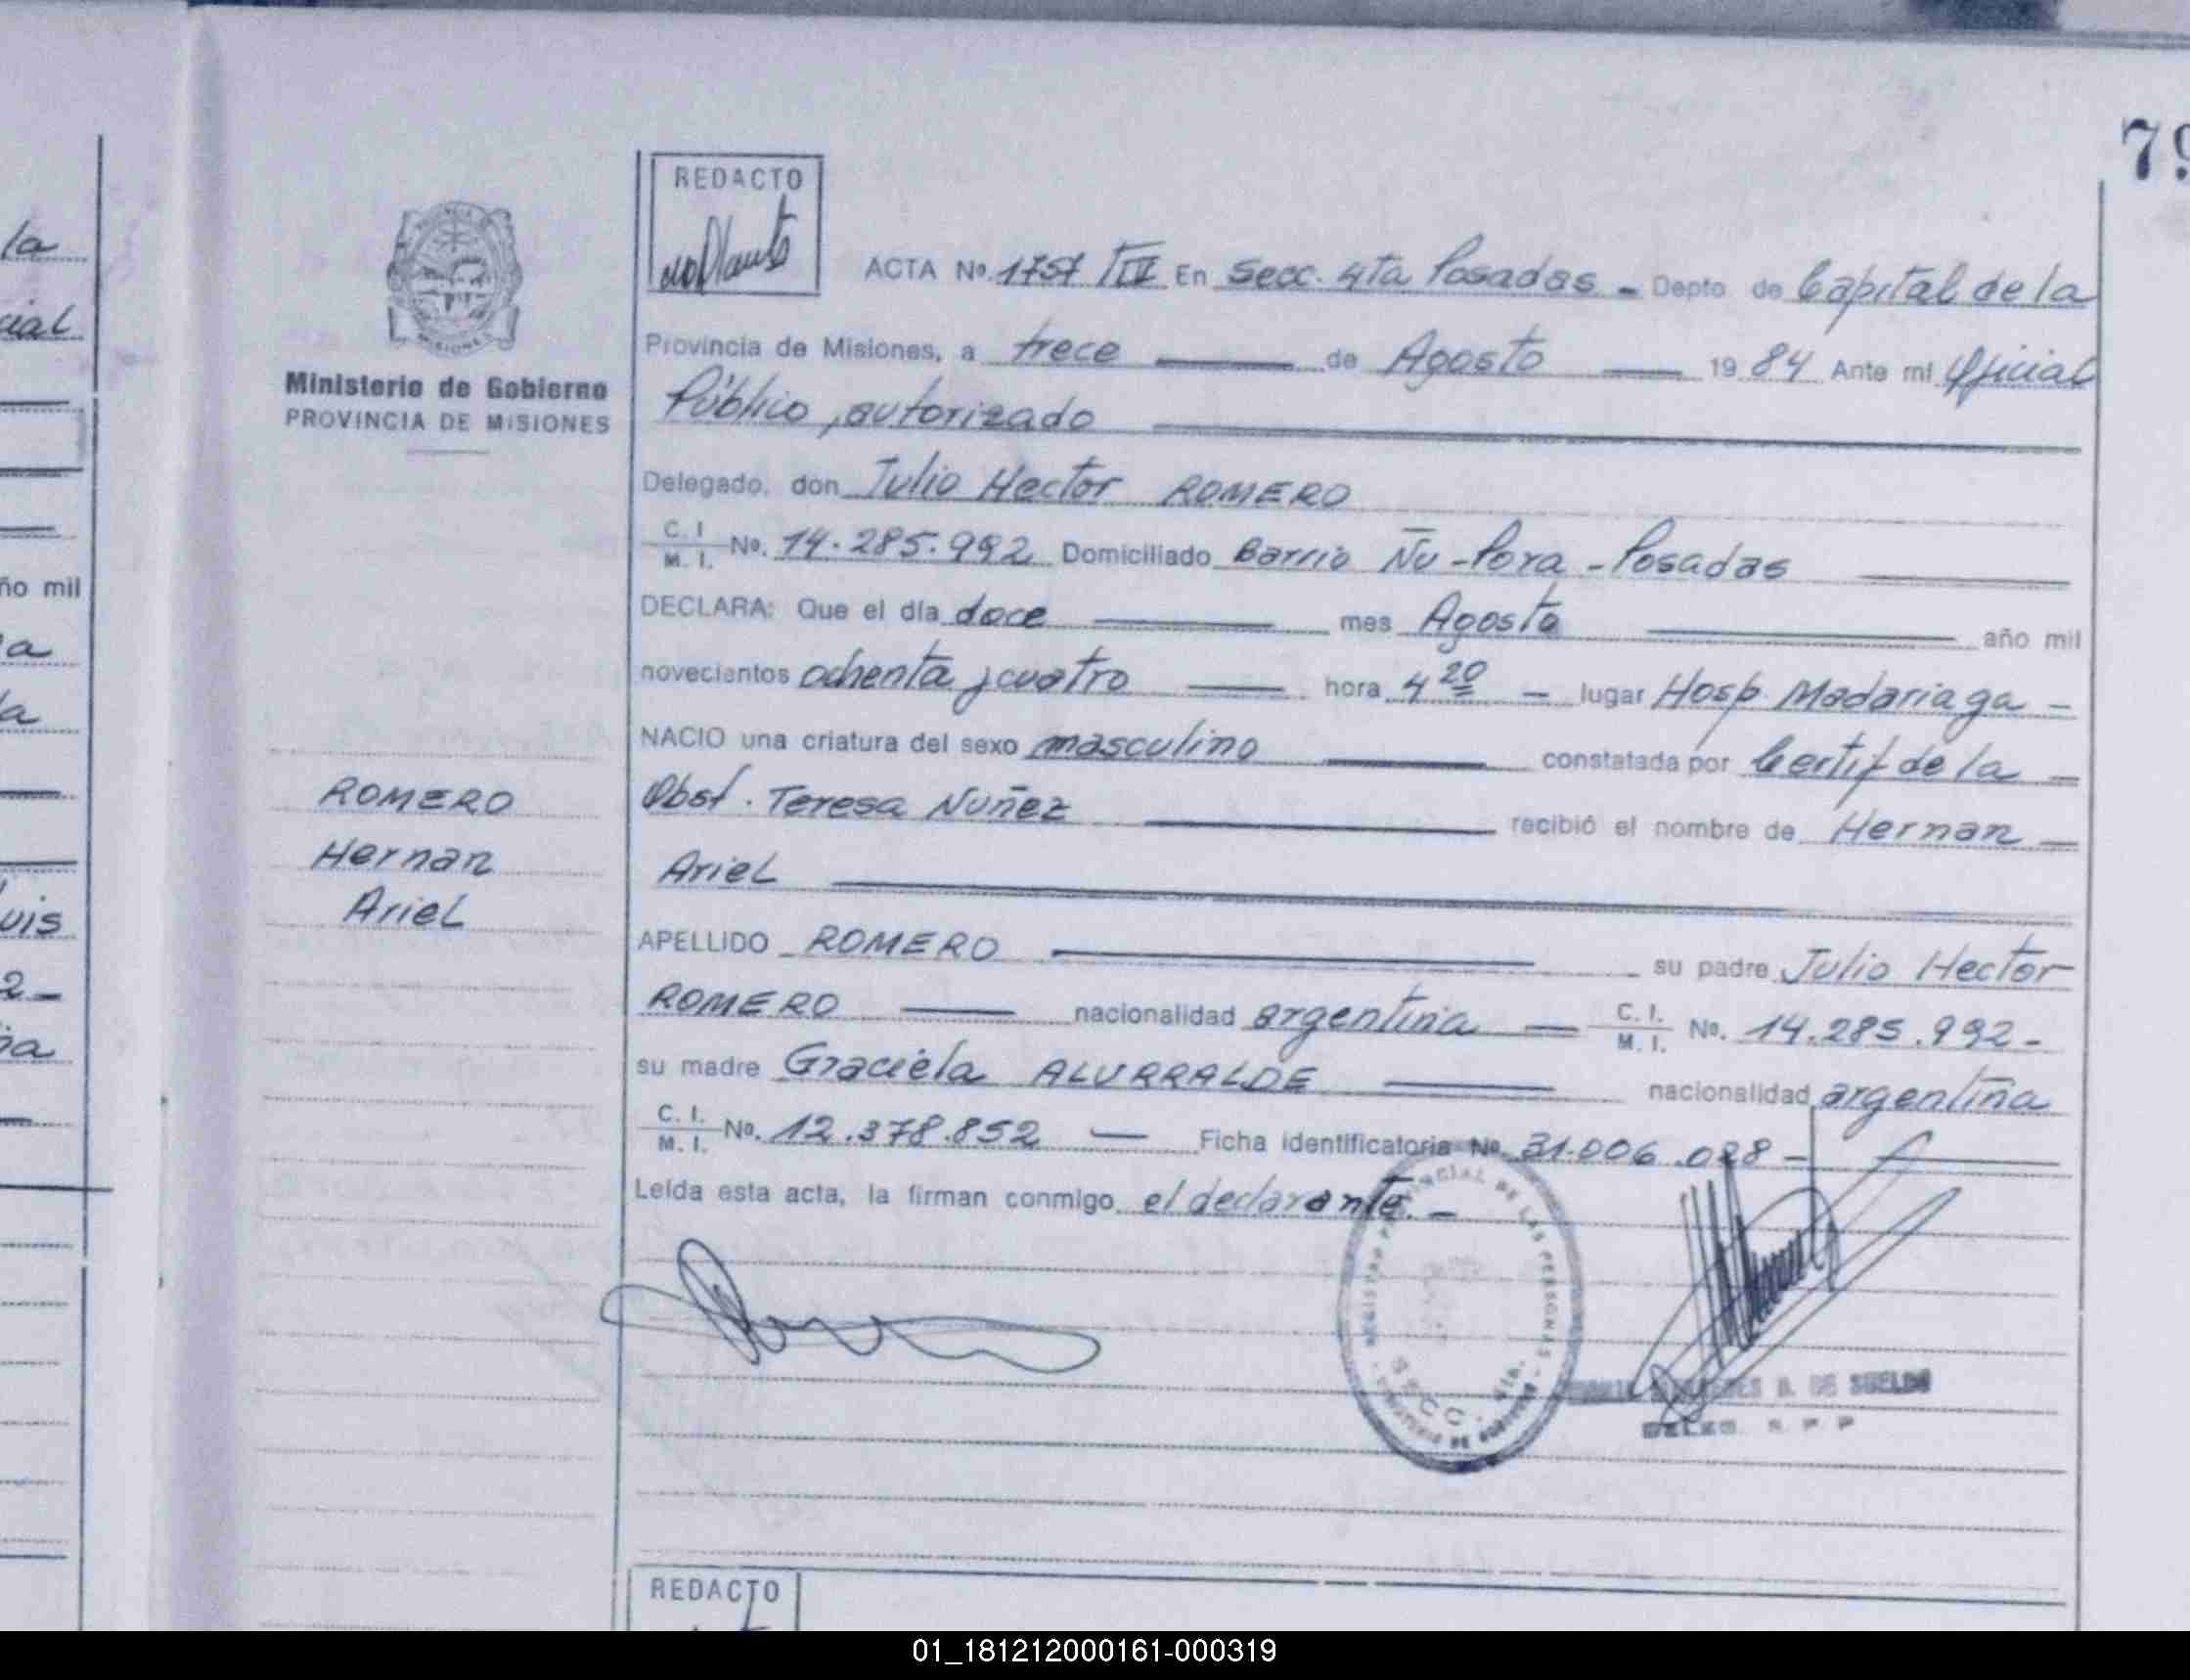 79
REDACTO
ACTA No. 1757 TIV En Secc. 4ta Posadas - Depto de Capital de la
Provincia de Misiones, a trece de Agosto 1984 Ante mi Oficial
Público, autorizado
Delegado, don Julio Hector ROMERO
C. I. M. I. No. 14.285.992 Domiciliado Barrio Ñu-Pora - Posadas
DECLARA: Que el día doce mes Agosto año mil
novecientos ochenta y cuatro hora 4 20 - lugar Hosp. Madariaga -
NACIO una criatura del sexo masculino constatada por Certif de la -
Obst. Teresa Nuñez recibió el nombre de Hernan -
Ariel
APELLIDO ROMERO su padre Julio Hector
ROMERO nacionalidad argentina - C. I. M. I. No. 14.285.992-
su madre Graciela ALURRALDE nacionalidad argentina
C. I. M. I. No. 12.378.852 - Ficha identificatoria No. 31.006.028 -
Leída esta acta, la firman conmigo el declarante. -
MISIONES
Ministerio de Gobierno
PROVINCIA DE MISIONES
ROMERO
Hernan
Ariel
REGISTRO PROVINCIAL DE LAS PERSONAS
SECC. 4ta.
MINISTERIO DE GOBIERNO
DE SUELDO
DELEG. R. P. P
REDACTO
la
cial
ño mil
a
la
uis
2-
na
01_181212000161-000319